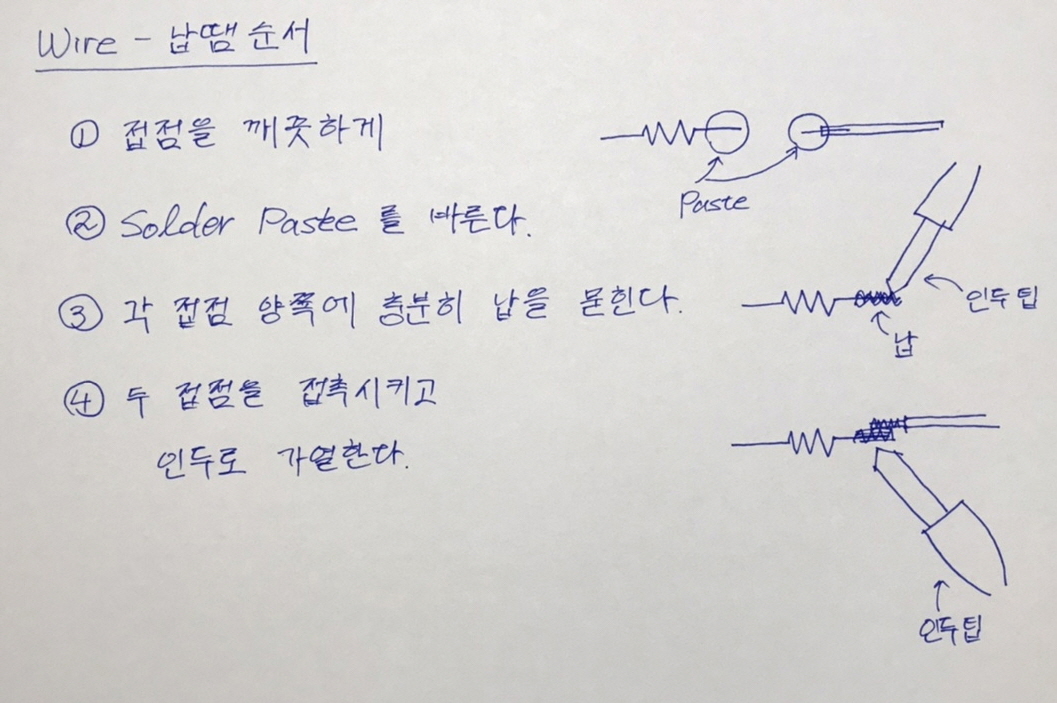 Wire - 납땜 순서
① 접점을 깨끗하게
② Solder Paste 를 바른다.
③ 각 접점 양쪽에 충분히 납을 묻힌다.
④ 두 접점을 접촉시키고
인두로 가열한다.
Paste
인두팁
납
인두팁